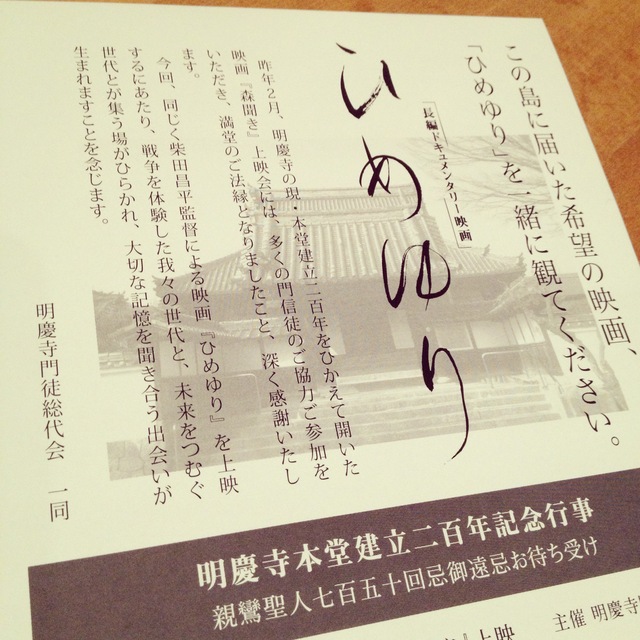 この島に届いた希望の映画、
「ひめゆり」を一緒に観てください。
長編ドキュメンタリー映画
ひめゆり
昨年2月、明慶寺の現・本堂建立二百年をひかえて開いた
映画『森聞き』上映会には、多くの門信徒のご協力ご参加を
いただき、満堂のご法縁となりましたこと、深く感謝いたし
ます。
今回、同じく柴田昌平監督による映画『ひめゆり』を上映
するにあたり、戦争を体験した我々の世代と、未来をつむぐ
世代とが集う場がひらかれ、大切な記憶を聞き合う出会いが
生まれますことを念じます。
明慶寺門徒総代会 一同
明慶寺本堂建立二百年記念行事
親鸞聖人七百五十回忌御遠忌お待ち受け
』上映
主催 明慶寺